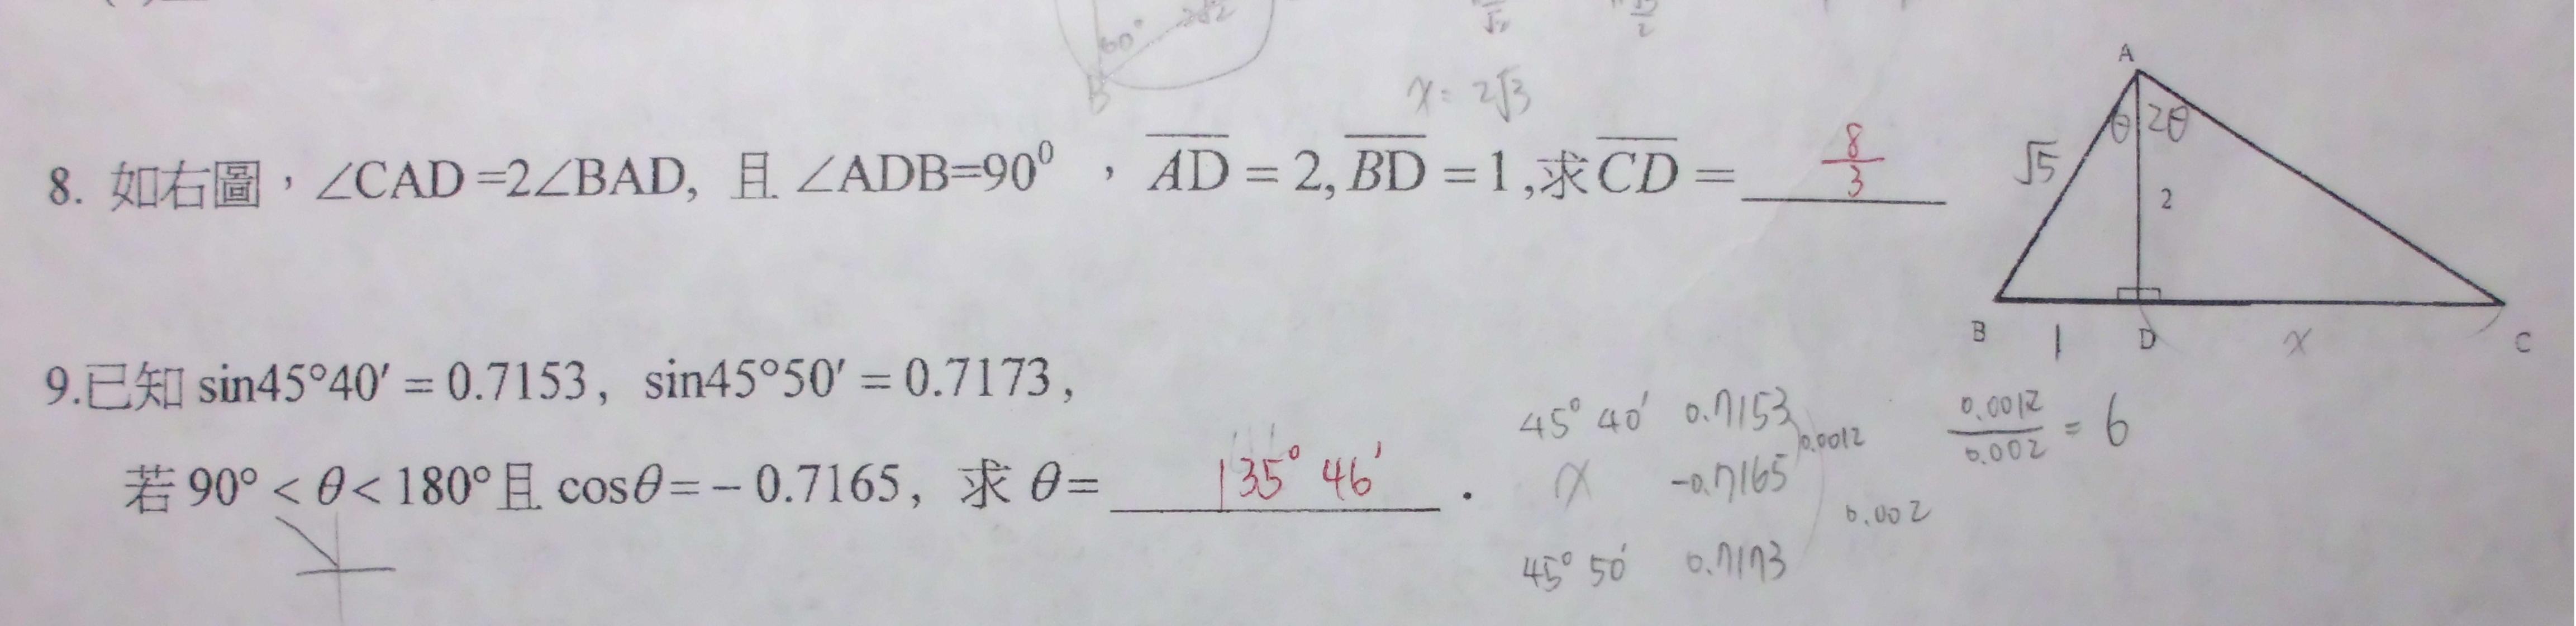 60° 2√2
B
x = 2√3
8. 如右圖，∠CAD =2∠BAD, 且 ∠ADB=90⁰ ，AD = 2, BD = 1 ,求 CD = 8/3
A
θ 2θ
√5
2
B 1 D x C
9.已知 sin45°40′ = 0.7153, sin45°50′ = 0.7173,
若 90° < θ < 180° 且 cosθ = − 0.7165, 求 θ = 135° 46′ .
45° 40′ 0.7153
0.0012
x -0.7165
0.002
45° 50′ 0.7173
0.0012/0.002 = 6